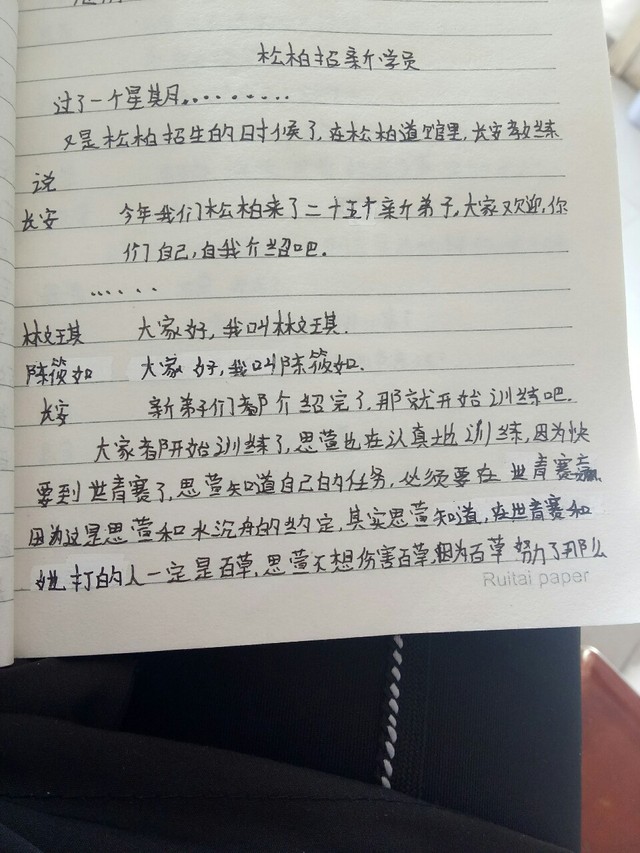 松柏招新学员
过了一个星其月。........
又是松柏招生的日时候了,在松柏道馆里,长安教练
说
长安 今年我们松柏来了二十五个新弟子,大家欢迎,你
们自己,自我介绍吧。
......
林文琪 大家好,我叫林文琪.
陈筱如 大家好,我叫陈筱如.
长安 新弟子们都介绍完了,那就开始训练吧.
大家都开始训练了,思萱也在认真地训练,因为快
要到世青赛了,思萱知道自己的任务,必须要在世青赛赢,
因为这是思萱和水沉舟的约定,其实思萱知道,在世青赛和
她打的人一定是百草,思萱不想伤害百草,因为百草努力了那么
Ruitai paper